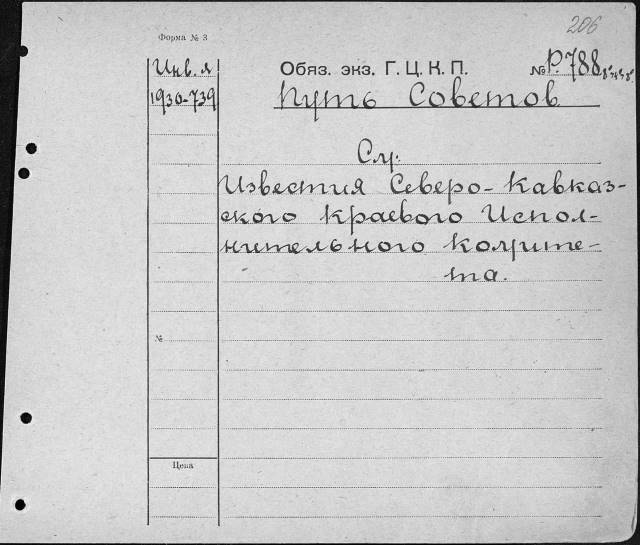 206
Форма № 3
Инв. л
1930-739
Обяз. экз. Г. Ц. К. П.
№ Р. 788
Путь Советов
См:
Известия Северо-Кавказ-
ского Краевого Испол-
нительного комите-
та.
№
Цена